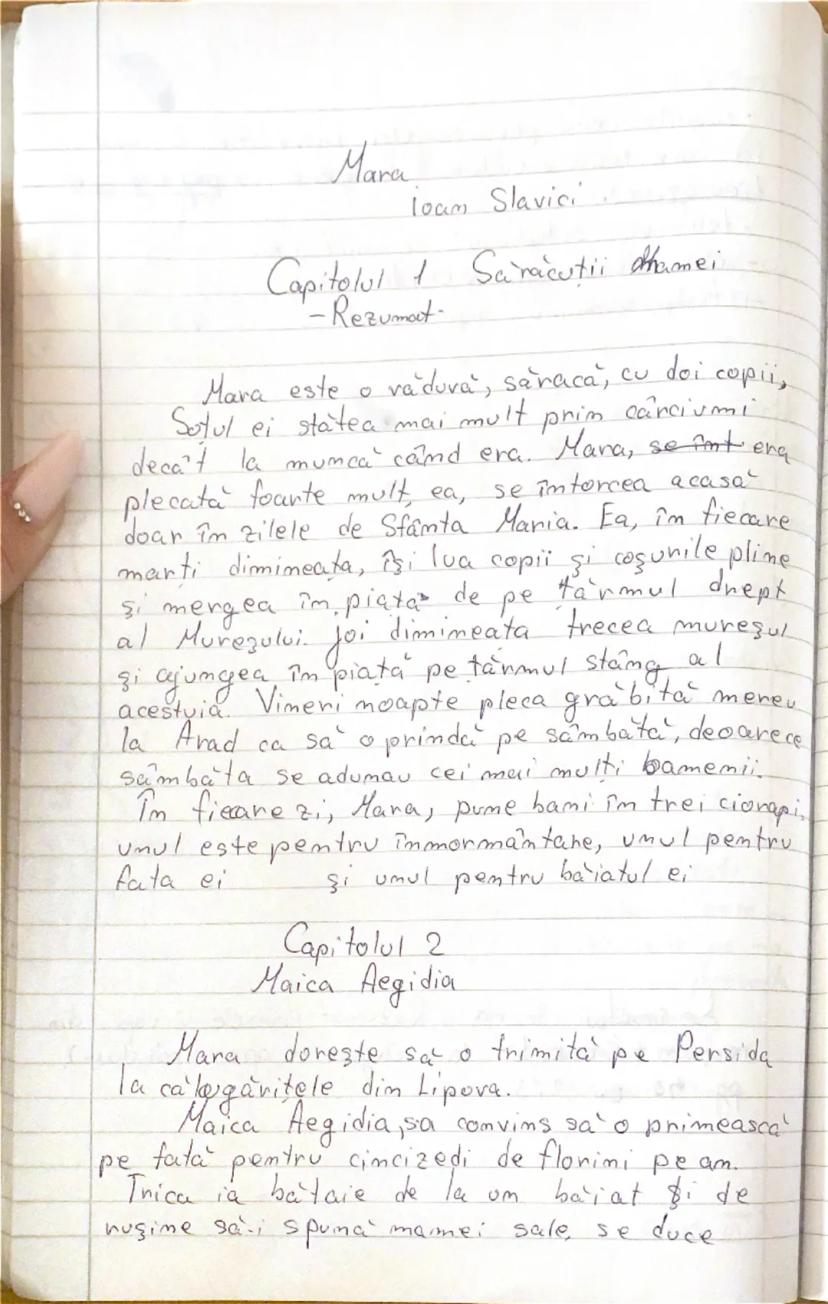 Mara
ioan Slavici
Capitolul 1 Sărăcuții mamei
-Rezumat-
Mara este o văduvă, săracă, cu doi copii,
Soțul ei stătea mai mult prin cârciumi
decât la muncă când era. Mara, se înt era
plecată foarte mult, ea, se întorcea acasă
doar în zilele de Sfânta Maria. Ea, în fiecare
marți dimineața, își lua copii și coșurile pline
și mergea în piața de pe țărmul drept
al Mureșului. Joi dimineata trecea mureșul
și ajungea în piață pe țărmul stâng al
acestuia. Vineri noapte pleca grăbită mereu
la Arad ca să o prindă pe sâmbătă, deoarece
sâmbăta se adunau cei mai mulți oamenii.
În fieare zi, Mara, pune bani în trei ciorapi,
unul este pentru înmormântare, unul pentru
fata ei și unul pentru băiatul ei
Capitolul 2
Maica Aegidia
Mara dorește să o trimită pe Persida
la călegărițele din Lipova.
Maica Aegidia, sa convins să o primească
pe fată pentru cincizedi de florini pe an.
Trica ia bătaie de la un băiat și de
rușine să-i spună mamei sale, se duce